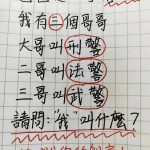 我有三個哥哥
大哥叫刑警
二哥叫法警
三哥叫武警
請問:"我"叫什麼?